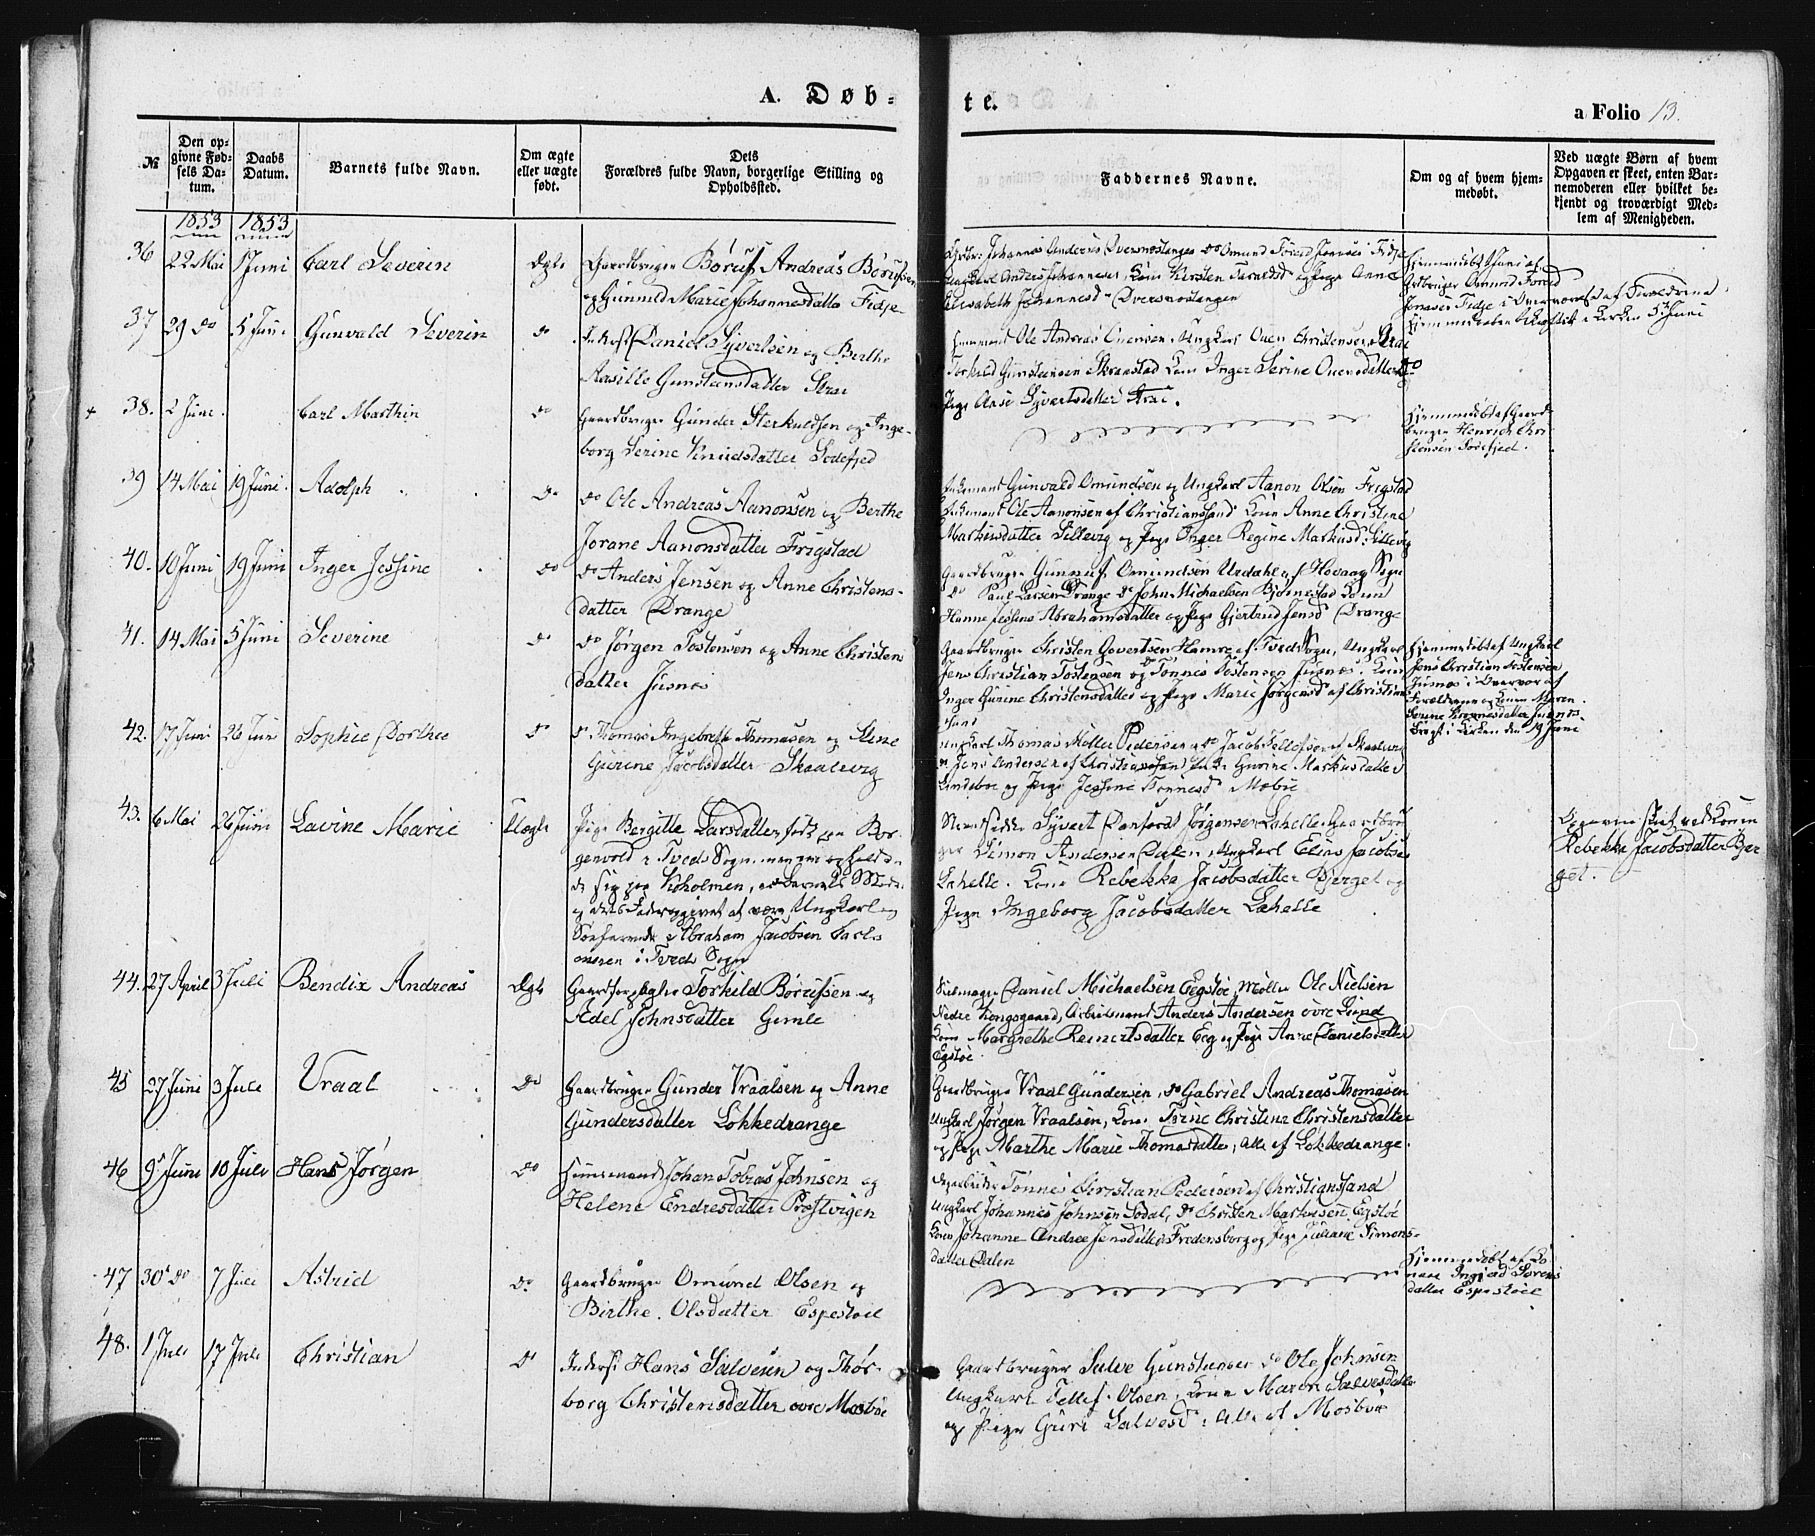 A. Døb-
te.
a Folio 13.
№
Den op-
givne Fød-
sels Da-
tum.
Daabs
Datum.
Barnets fulde Navn.
Om ægte
eller uægte
født.
Dets
Forældres fulde Navn, borgerlige Stilling og
Opholdssted.
Faddernes Navne.
Om og af hvem hjem-
medøbt.
Ved uægte Børn af hvem
Opgaven er skeet, enten Bar-
nemoderen eller hvilket be-
kjendt og troværdigt Med-
lem af Menigheden.
1853 1853
36 22 Mai 1 Juni Carl Severin Ægte Gaardbruger Børuf Andreas Børufsen
og Gunild Marie Johannesdatte Fidje
Elisabeth Johannesd Dversnestangen
37 29 do 5 Juni Gunvald Severin do Inderst Daniel Syvertsen og Berthe
Aasille Gunsteinsdatter Strai
Ole Andreas Ungkarl Ouen Christensen Strai
Torkild Gunsteinsen Skraastad Kone Inger Serine Ouensdatter
Pige Aase Syvertsdatter Strai.
38. 2 Juni. Carl Marthin do Gaardbruger Gunder Sterkuldsen og Inge-
borg Serine Knudsdatter Sodefjed
Hjemmedøbt af Gaard-
bruger Henrich Chri-
stensen Sodefjed.
39 14 Mai 19 Juni. Adolph do do Ole Andreas Aanonsen og Berthe
Jorane Aanonsdatter Frigstad
Gunvald Omundsen og Ungkarl Aanon Olsen Frigstad
Ole Aanonsen af Christianssand Kone Anne Christine
Markusdatter Sillevig og Pige Inger Regine Markusd: Sillevig
40. 10 Juni 19 Juni Inger Jessine do do Anders Jensen og Anne Christens-
datter Drange
Gaardbruger Gunnuf Omundsen Urdahl af Hovaag Sogn
do Paul Larsen Drange do John Michaelsen Bjørnestad Kone
Hanne Jessine Abrahamsdatter og Pige Gjertrud Jensd Drange
41. 14 Mai 5 Juni Severine do do Jørgen Tostensen og Anne Christens
datter Jusnes
Gaardbruger Christen Govertsen Hamre af Tveds Sogn, Ungkarl
Jens Christian Tostensen og do Tønnes Tostensen Jusnes. Kone
Inger Gurine Christensdatter og Pige Marie Jørgensd af Christian
sand
Hjemmedøbt af Ungkarl
Jens Christian Tostensen
Jusnes i Overvær af
Forældrene og Konen Maren
Bragt i Kirken den 19 Juni
42. 17 Juni 26 Juni Sophie Dorthee do do Thomas Ingebreth Thomasen og Stine
Gurine Jacobsdatter Skaalevig
Ungkarl Thomas Møller Pedersen do Jacob Tellefsen af Skaalevig
do Jens Andersen af Christianssand Gurine Markusdatter
Lindeboe og Pige Jessine Tønnesd Moboe
43. 6 Mai 26 Juni Lavine Marie Uægte Pige Bergitte Larsdatter født paa Bor-
gervold i Tveds Sogn, men nu opholden-
de sig paa Kuholmen, Barnets Moder
og dets Fader opgivet at være Ungkarl og
Søefarende Abraham Jacobsen
i Tveds Sogn
Syvert Danford Jørgensen Lahelle Gaardbru-
ger Simon Andersen Dalen, Ungkarl Elias Jacobsen
Lahelle. Kone Rebekka Jacobsdatter Bjerget og
Pige Ingeborg Jacobsdatter Lahelle
Opgaven skeet ved Konen
Rebekka Jacobsdatter Bjer
get.
44. 27 April 3 Juli Bendix Andreas Ægte Gaardforpagter Torkild Børufsen og
Adel Johnsdatter Gimle
Daniel Michaelsen Eegstøe, Møller Ole Nielsen
Nedre Kongsgaard, Arbeidsmand Anders Andersen øvre Lund
Kone Margrethe Reinertsdatter Eeg og Pige Anne Danielsdatter
Egstøe.
45 27 Juni 3 Juli Vraal do Gaardbruger Gunder Vraalsen og Anne
Gundersdatter Løkkedrange
Gaardbruger Vraal Gundersen, do Gabriel Andreas Thomasen
Ungkarl Jørgen Vraalsen, Kone Trine Christine Christensdatter
og Pige Marthe Marie Thomasdatter, alle af Løkkedrange.
46 9 Juni 10 Juli Hans Jørgen do Huusmand Johan Tobias Johnsen og
Helene Endresdatter Præstvigen
Tønnes Christian Pedersen af Christianssand
Ungkarl Johannes Johnsen Sødal, do Christen Markusen, Egstøe
Kone Johanne Andrea Jensdatter Fredensborg og Pige Juliane Simons-
datter Dalen
47 30 do 7 Juli Astrid Do Gaardbruger Omund Olsen og
Birthe Olsdatter Espestøel
Hjemmedøbt af Ko
nen Ingjerd Sørens
datter Espestøel
48. 1 Juli 17 Juli Christian do Inderst Hans Salvesen og Thor-
borg Christensdatter øvre Mosbøe
Gaardbruger Salve Gunstensen do Ole Johnsen
Ungkarl Tellef Olsen, Kone Maren Salvesdatter
og Pige Guri Salvesd: Alle af Mosbøe